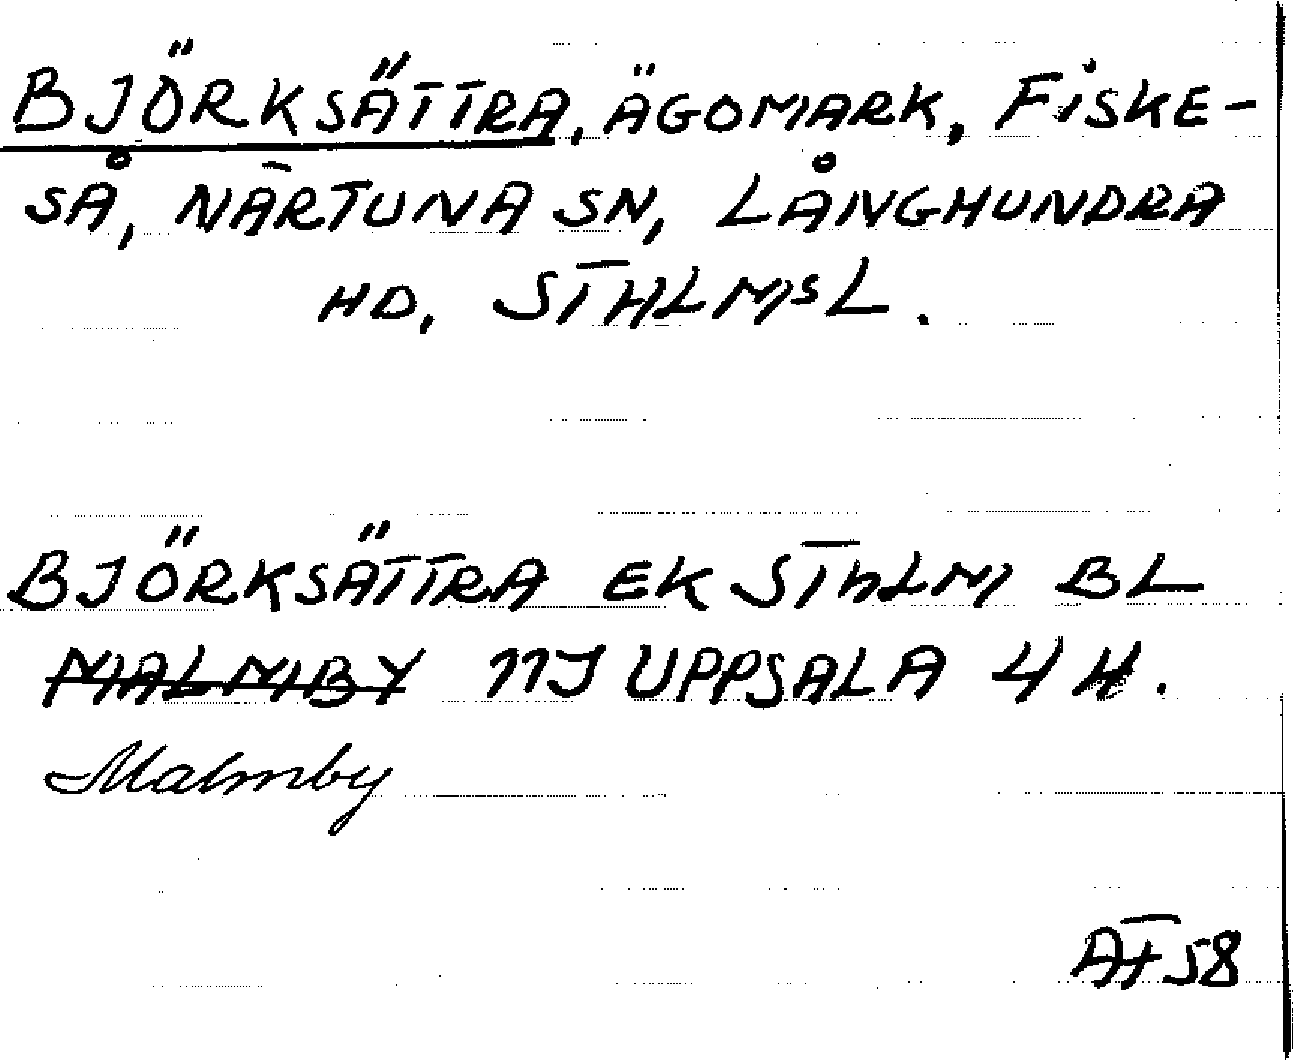 BJÖRKSÄTTRA, ÄGOMARK, FISKE-
SÅ, NÄRTUNA SN, LÅNGHUNDRA
HD, STHLMSL.
BJÖRKSÄTTRA EK STHLM BL
MALMBY 11J UPPSALA 4 H.
Malmby
AF58